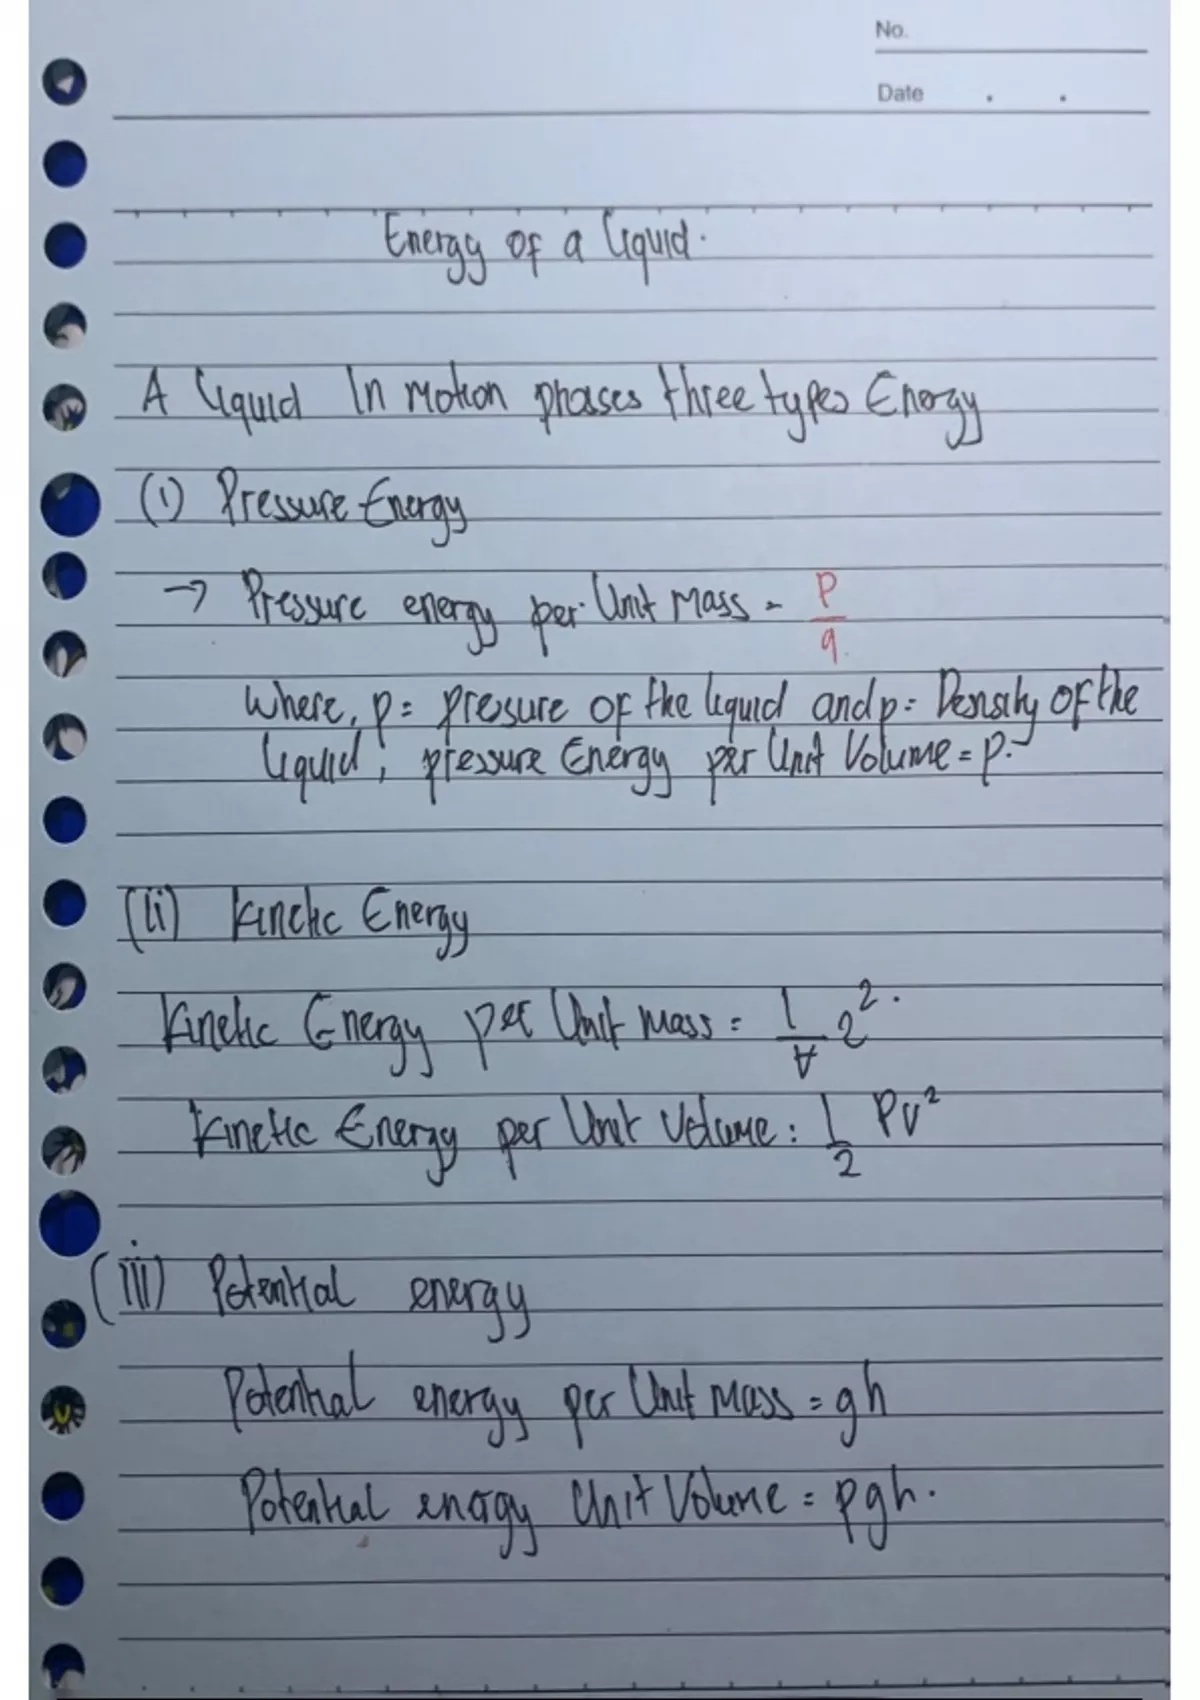 No.
Date
Energy of a liquid.
A liquid In Motion phases three types Energy
(i) Pressure Energy
→ Pressure energy per Unit Mass = P/q.
Where, p = pressure of the liquid and p = Density of the
liquid, pressure Energy per Unit Volume = p.
(ii) Kinetic Energy
Kinetic Energy per Unit Mass = 1/∀ 2².
Kinetic Energy per Unit Volume: 1/2 Pv²
(iii) Potential energy
Potential energy per Unit Mass = gh
Potential energy Unit Volume = pgh.